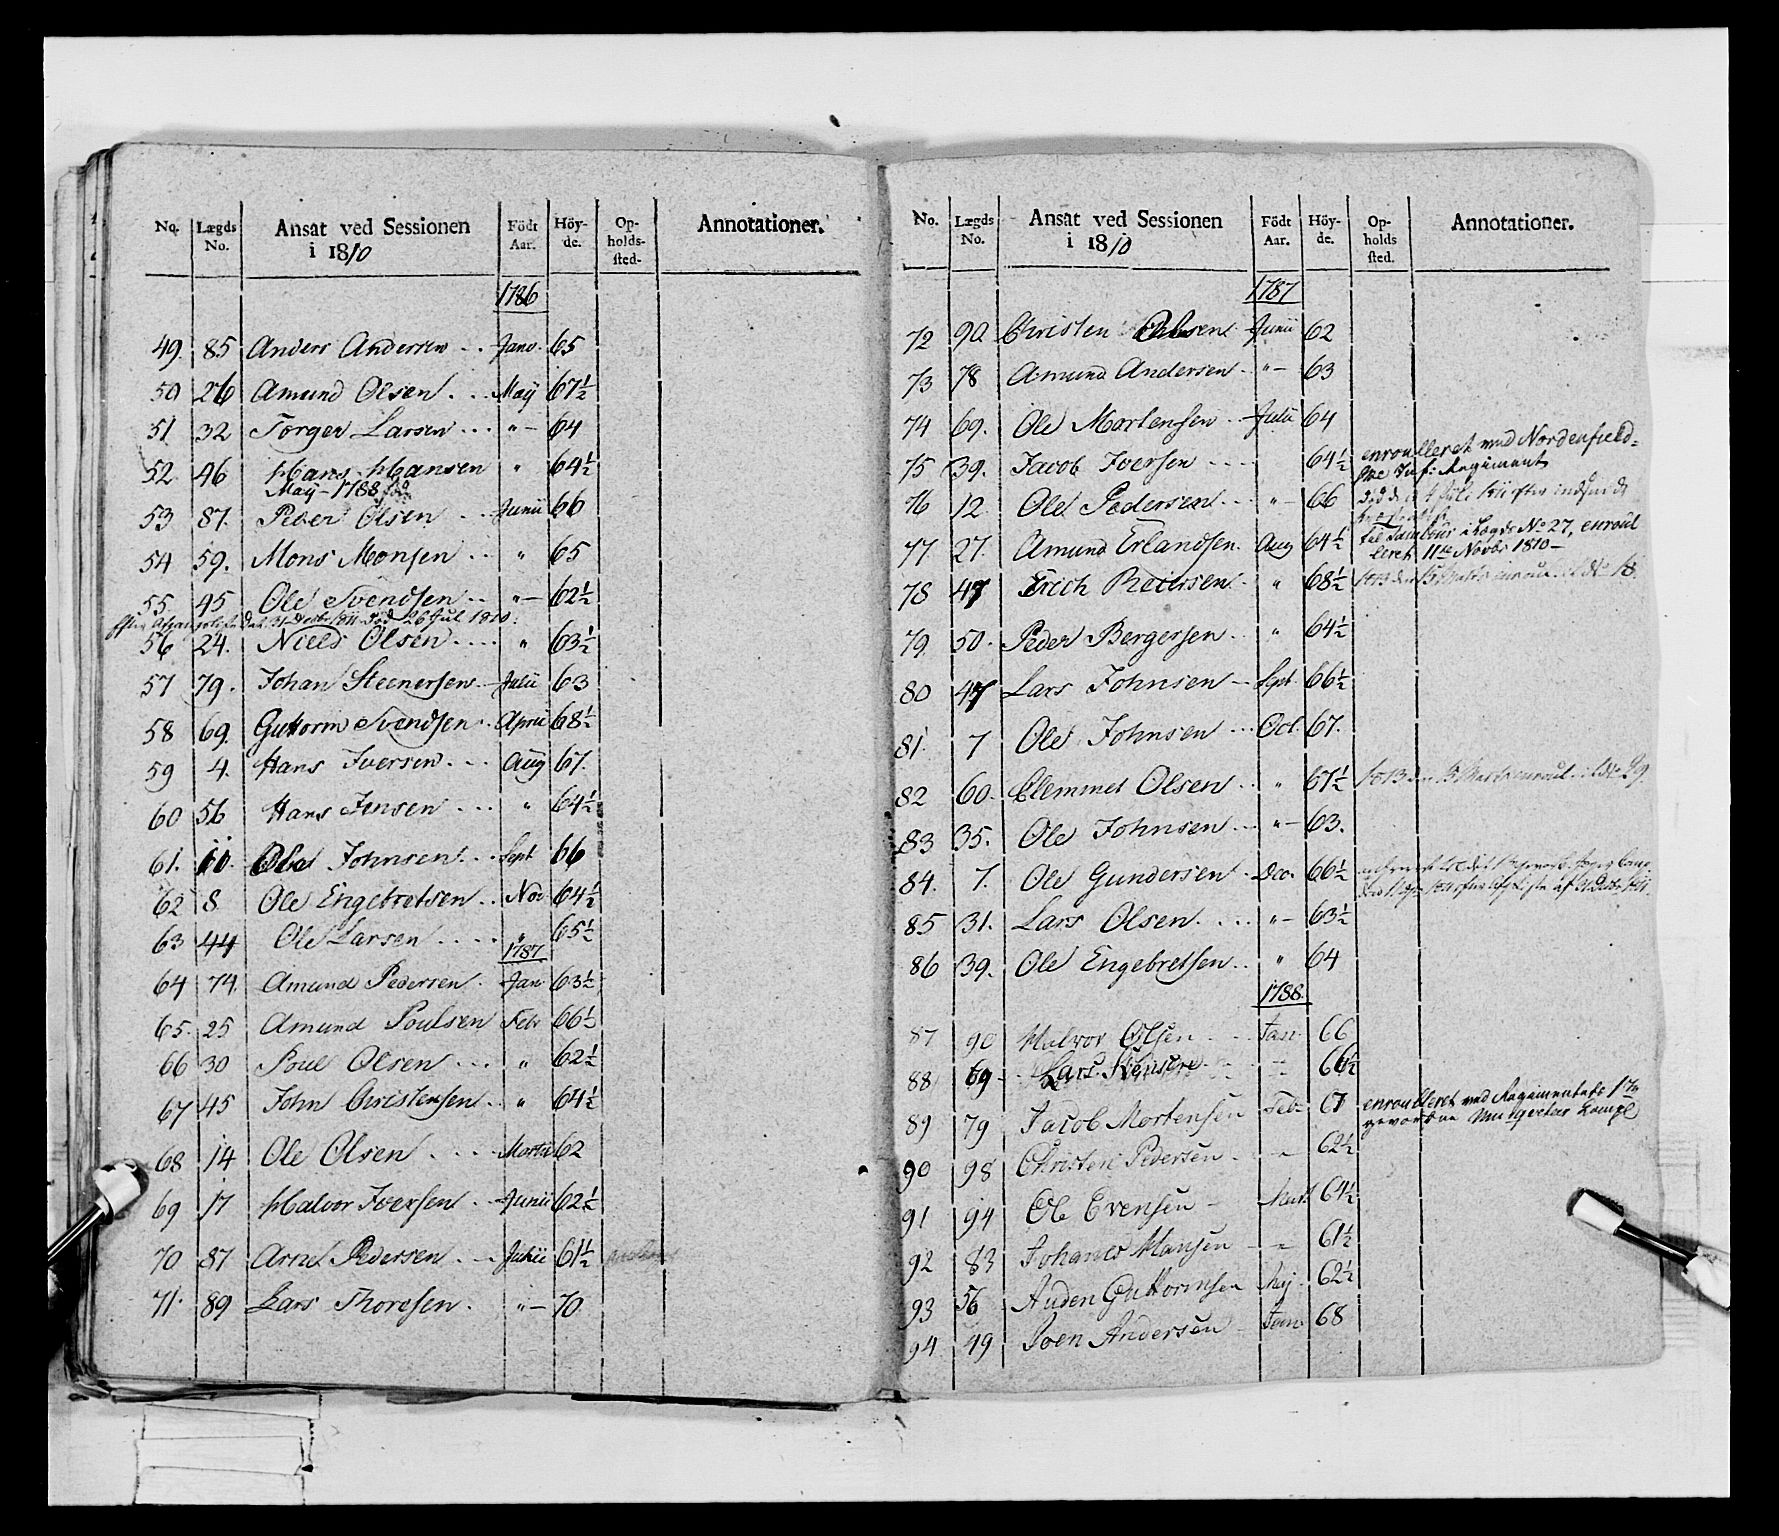 No. Lægds No. Ansat ved Sessionen i 1810 Födt Aar. Höy-de. Op-holds-sted- Annotationer.
1786
49. 85 Anders Andersen Janv. 65
50 26 Amund Olsen May 67½
51 32 Torger Larsen " 64
52. 46 Hans Hansen " 64½
May - 1788 föd
53 87. Peder Olsen Junii 66
54 59. Mons Monsen " 65
55 45 Ole Svendsen " 62½
död 26 Jul 1810
56 24. Niels Olsen " 63½
57 79. Johan Steenersen Julii 63
58 69. Guttorm Svendsen April 68½
59 4. Hans Iversen Aug 67.
60 56 Hans Jensen " 64½
61. 10. Ole Johnsen Sept 66
62 8 Ole Engebretsen Nov 64½
63 44 Ole Larsen " 65½
1787
64 74 Amund Pedersen Jan 63½
65. 25 Amund Poulsen Febr 66½
66 30 Poul Olsen " 62½
67 45 John Christensen " 64½
68 14 Ole Olsen Martii 62
69 17 Halvor Iversen Junii 62½
70 87 Arne Pedersen Julii 61½
71. 89 Lars Thoresen " 70
No. Lægds No. Ansat ved Sessionen i 1810 Födt Aar. Höy-de. Op-holds sted. Annotationer.
1787
72 90 Christen Olsen Junii 62
73 78 Amund Andersen " 63
74 69. Ole Mortensen Julii 64
75 39. Jacob Iversen 64½ enroulleret ved Nordenfield-
ske Inf: Regiment
76 12. Ole Pedersen " 66
77 27. Amund Erlandsen Aug 64½ til Tambour i Lægds No 27, enroul
leret 11te Novbr 1810
78 47 Erich Petersen " 68½
79. 50. Peder Bergersen " 64½
80 47 Lars Johnsen Sept 66½
81. 7 Ole Johnsen Oct. 67.
82 60. Clemmet Olsen " 67½
83 35. Ole Johnsen " 63.
84. 7. Ole Gundersen Dec. 66½
85 31. Lars Olsen " 63½
86 39. Ole Engebretsen " 64
1788
87 90 Halvor Olsen Jan 66
88 69 Lars 66½
89 79 Jacob Mortensen Feb 67 enroulleret ved Regimentets 1te
gevorbne Musqueteer Comp
90 98 Christen Pedersen " 62½
91 94 Ole Evensen Mart 64½
92 83 Johanes Hansen " 61½
93 56 Auden Guttormsen Maj 62½
94 49 Soen Andersen 68